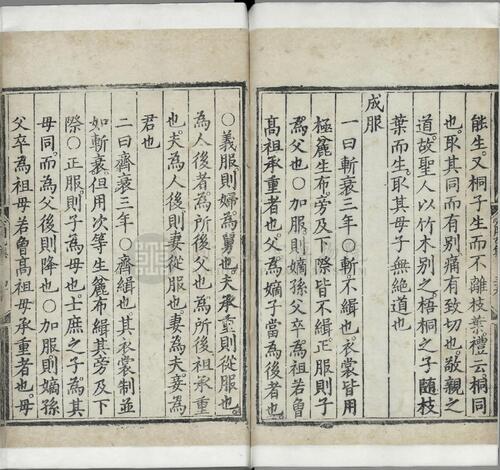 能生又桐子生而不離枝葉禮云桐同
也取其同而有别痛有致切也敬親之
道故聖人以竹木别之梧桐之子隨枝
葉而生取其母子無絶道也
成服
一曰斬衰三年○斬不緝也衣裳皆用
極麄生布旁及下際皆不緝也正服則子
為父也○加服則嫡孫父卒為祖若曾
高祖承重者也父為嫡子當為後者也
○義服則婦為舅也夫承重則從服也
為人後者為所後父也為所後祖承重
也夫為人後則妻從服也妻為夫妾為
君也
二曰齊衰三年○齊緝也其衣裳制並
如斬衰但用次等生麄布緝其旁及下
際○正服則子為母也士庶之子為其
母同而為父後則降也○加服則嫡孫
父卒為祖母若曾高祖母承重者也母